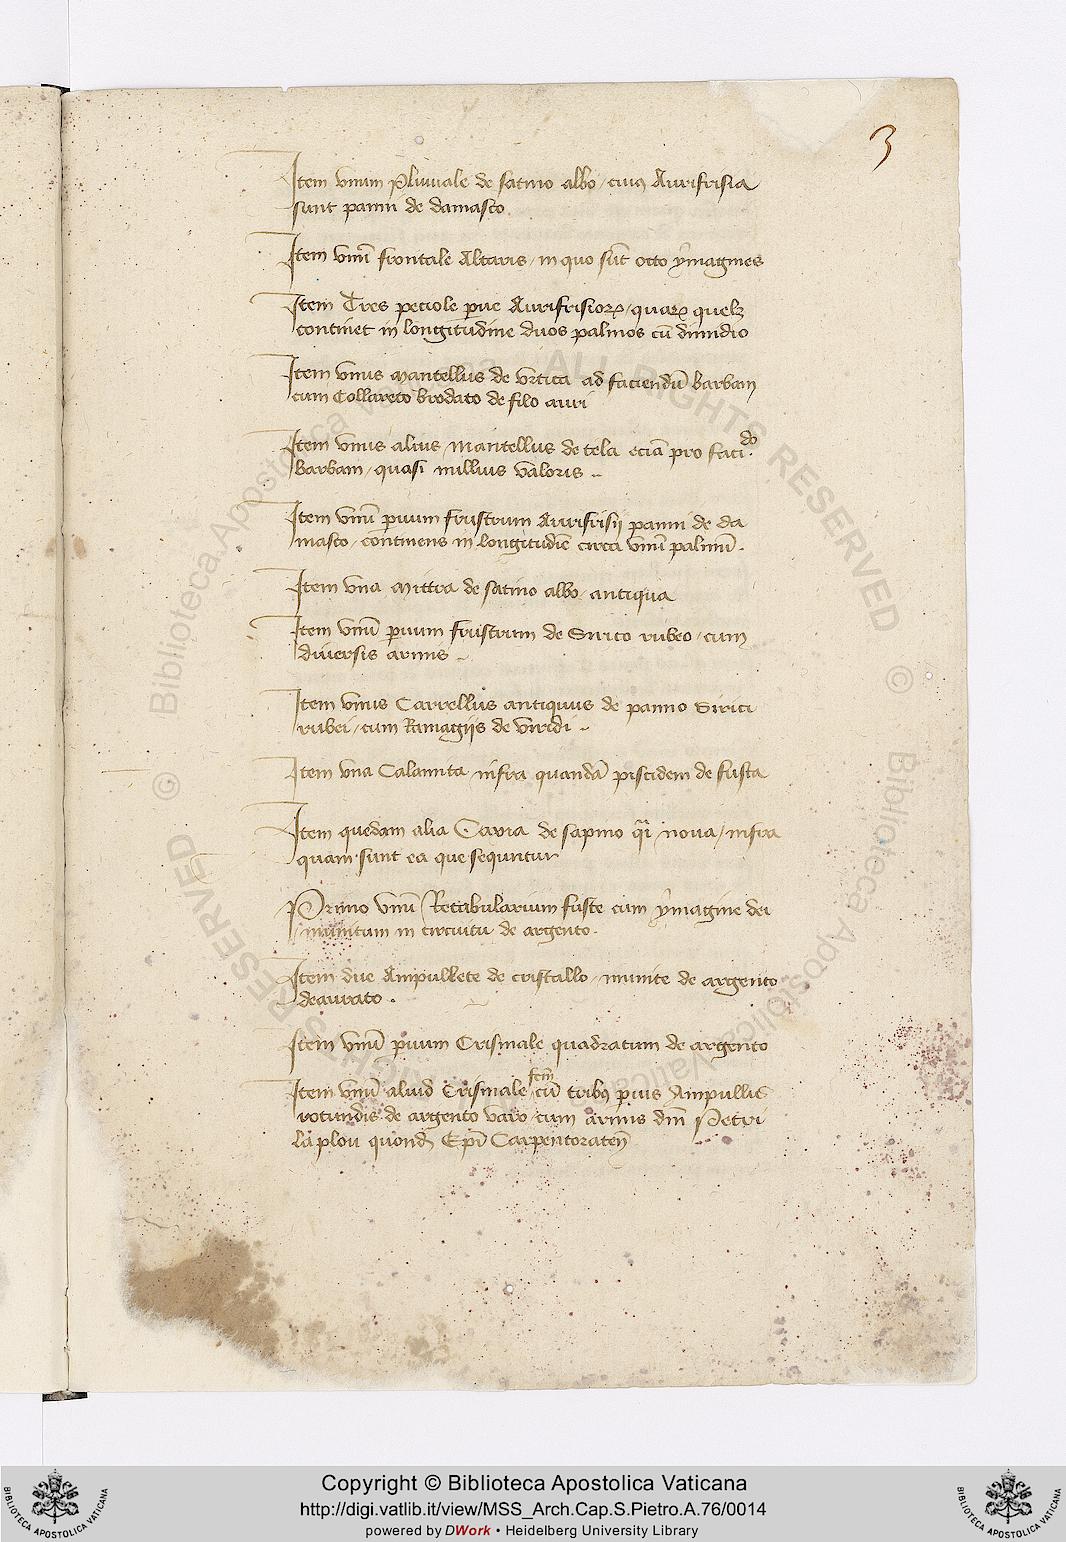 3
Item vnum pluuiale de satino albo / cuius Aurifrisia
sunt panni de damasco
Item vnũ frontale Altaris / in quo sũt octo ymagines
Item Tres peciole pue Aurifrisioꝝ / quaꝝ quelꝫ
continet in longitudine duos palmos cũ dimidio
Item vnus mantellus de vrtica ad faciendũ barbam
cum Collareto brodato de filo auri
Item vnus alius mantellus de tela eciã pro faci.do
barbam / quasi nullius valoris ..
Item vnũ puum frustrum Aurifrisij panni de da
masco / continens in longitudiē circa vnũ palmũ .
Item vna mittra de satino albo antiqua
Item vnũ puum frustrum de Sirico rubeo / cum
diuersis armis ..
Item vnus Carrellus antiquus de panno Sirici
rubei / cum Ramagijs de viridi ..
Item vna Calamita infra quandã piscidem de fusta
Item quedam alia Caxia de sapino q̃i noua / infra
quam sunt ea que sequntur
Primo vnũ Retabularium fuste cum ymagine dei
munitum in circuitu de argento .
Item due Ampullete de cristallo / munite de argento
deaurato .
Item vnũ puum Crismale quadratum de argento
Item vnũ aliud Crismale / cũ tribꝰ puis Ampullis
rotundis de argento varo / cum armis dñi Petri
laplou quondã Ep̃i Carpentoraten̄
Copyright © Biblioteca Apostolica Vaticana
http://digi.vatlib.it/view/MSS_Arch.Cap.S.Pietro.A.76/0014
powered by DWork • Heidelberg University Library
BIBLIOTECA APOSTOLICA VATICANA
BIBLIOTECA APOSTOLICA VATICANA
© Biblioteca Apostolica Vaticana ALL RIGHTS RESERVED
© Biblioteca Apostolica Vaticana ALL RIGHTS RESERVED